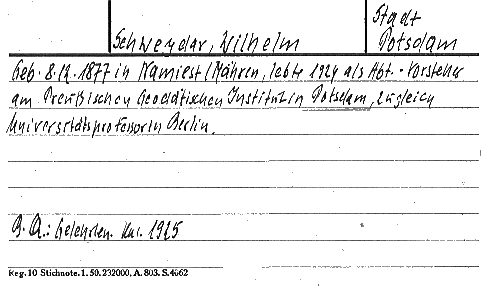 Stadt
Schweydar, Wilhelm Potsdam
Geb. 8.12.1877 in Namiest/Mähren, lebte 1924 als Abt.-Vorsteher
am Preußischen Geodätischen Institut in Potsdam, zugleich
Universitätsprofessor in Berlin.
B.Q.: Gelehrten. Kal. 1925
Reg. 10 Stichnote. 1. 50. 232000, A. 803. S. 4662